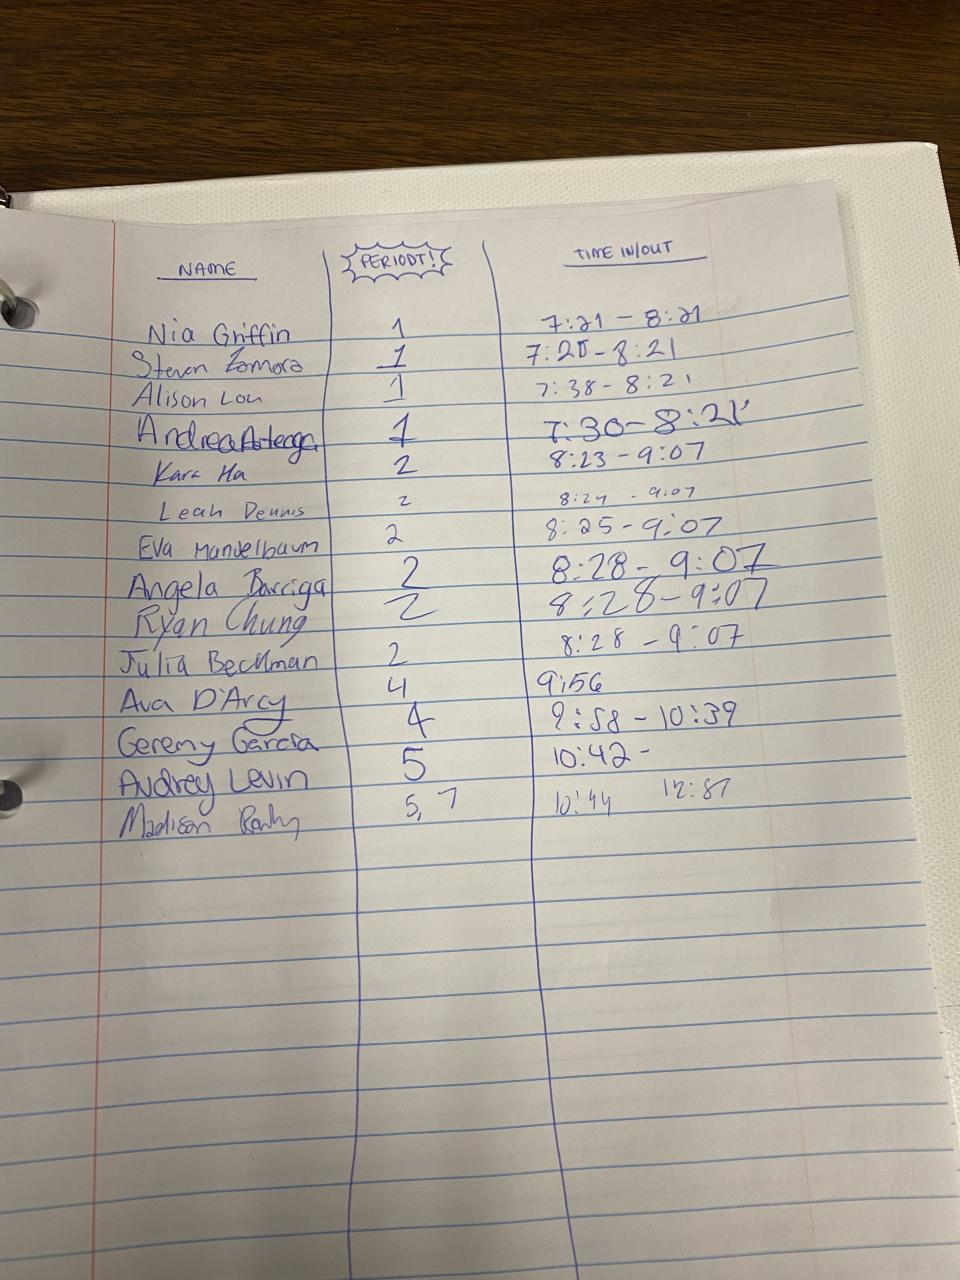 NAME PERIODT! TIME IN/OUT
Nia Griffin 1 7:21 - 8:21
Steven Zamora 1 7:20 - 8:21
Alison Lou 1 7:38 - 8:21
Andrea Arteaga 1 7:30 - 8:21
Kara Ha 2 8:23 - 9:07
Leah Dennis 2 8:24 - 9:07
Eva Mandelbaum 2 8:25 - 9:07
Angela Barriga 2 8:28 - 9:07
Ryan Chung 2 8:28 - 9:07
Julia Beckman 2 8:28 - 9:07
Ava D'Arcy 4 9:56
Geremy Garcia 4 9:58 - 10:39
Audrey Levin 5 10:42 -
Madison 5, 7 10:44